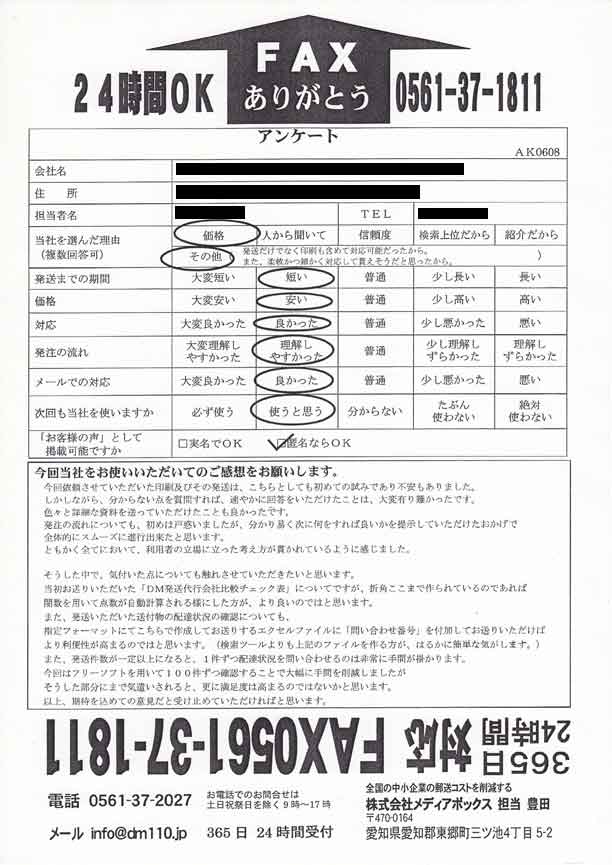 FAX
24時間OK
ありがとう
0561-37-1811
アンケート
AK0608
会社名
住　所
担当者名 TEL
当社を選んだ理由
（複数回答可）
価格 人から聞いて 信頼度 検索上位だから 紹介だから
その他
発送だけでなく印刷も含めて対応可能だったから。
また、柔軟かつ細かく対応して貰えそうだと思ったから。 ）
発送までの期間 大変短い 短い 普通 少し長い 長い
価格 大変安い 安い 普通 少し高い 高い
対応 大変良かった 良かった 普通 少し悪かった 悪い
発注の流れ 大変理解しやすかった 理解しやすかった 普通 少し理解しずらかった 理解しずらかった
メールでの対応 大変良かった 良かった 普通 少し悪かった 悪い
次回も当社を使いますか 必ず使う 使うと思う 分からない たぶん使わない 絶対使わない
「お客様の声」として
掲載可能ですか
□実名でOK □匿名ならOK
今回当社をお使いいただいてのご感想をお願いします。
今回依頼させていただいた印刷及びその発送は、こちらとしても初めての試みであり不安もありました。
しかしながら、分からない点を質問すれば、速やかに回答をいただけたことは、大変有り難かったです。
色々と詳細な資料を送っていただけたことも良かったです。
発注の流れについても、初めは戸惑いましたが、分かり易く次に何をすれば良いかを提示していただけたおかげで
全体的にスムーズに進行出来たと思います。
ともかく全てにおいて、利用者の立場に立った考え方が貫かれているように感じました。
そうした中で、気付いた点についても触れさせていただきたいと思います。
当初お送りいただいた「DM発送代行会社比較チェック表」についてですが、折角ここまで作られているのであれば
関数を用いて点数が自動計算される様にした方が、より良いのではと思います。
また、発送いただいた送付物の配達状況の確認についても、
指定フォーマットにてこちらで作成してお送りするエクセルファイルに「問い合わせ番号」を付加してお送りいただけば
より利便性が高まるのではと思います。（検索ツールよりも上記のファイルを作る方が、はるかに簡単な気がします。）
また、発送件数が一定以上になると、1件ずつ配達状況を問い合わせるのは非常に手間が掛かります。
今回はフリーソフトを用いて100件ずつ確認することで大幅に手間を削減しましたが
そうした部分にまで気遣いされると、更に満足度は高まるのではないかと思います。
以上、期待を込めての意見だと受け止めていただければと思います。
365日
24時間
対応
FAX0561-37-1811
電話 0561-37-2027
お電話でのお問合せは
土日祝祭日を除く9時〜17時
メール info@dm110.jp 365日 24時間受付
全国の中小企業の郵送コストを削減する
株式会社メディアボックス 担当 豊田
〒470-0164
愛知県愛知郡東郷町三ツ池4丁目5-2